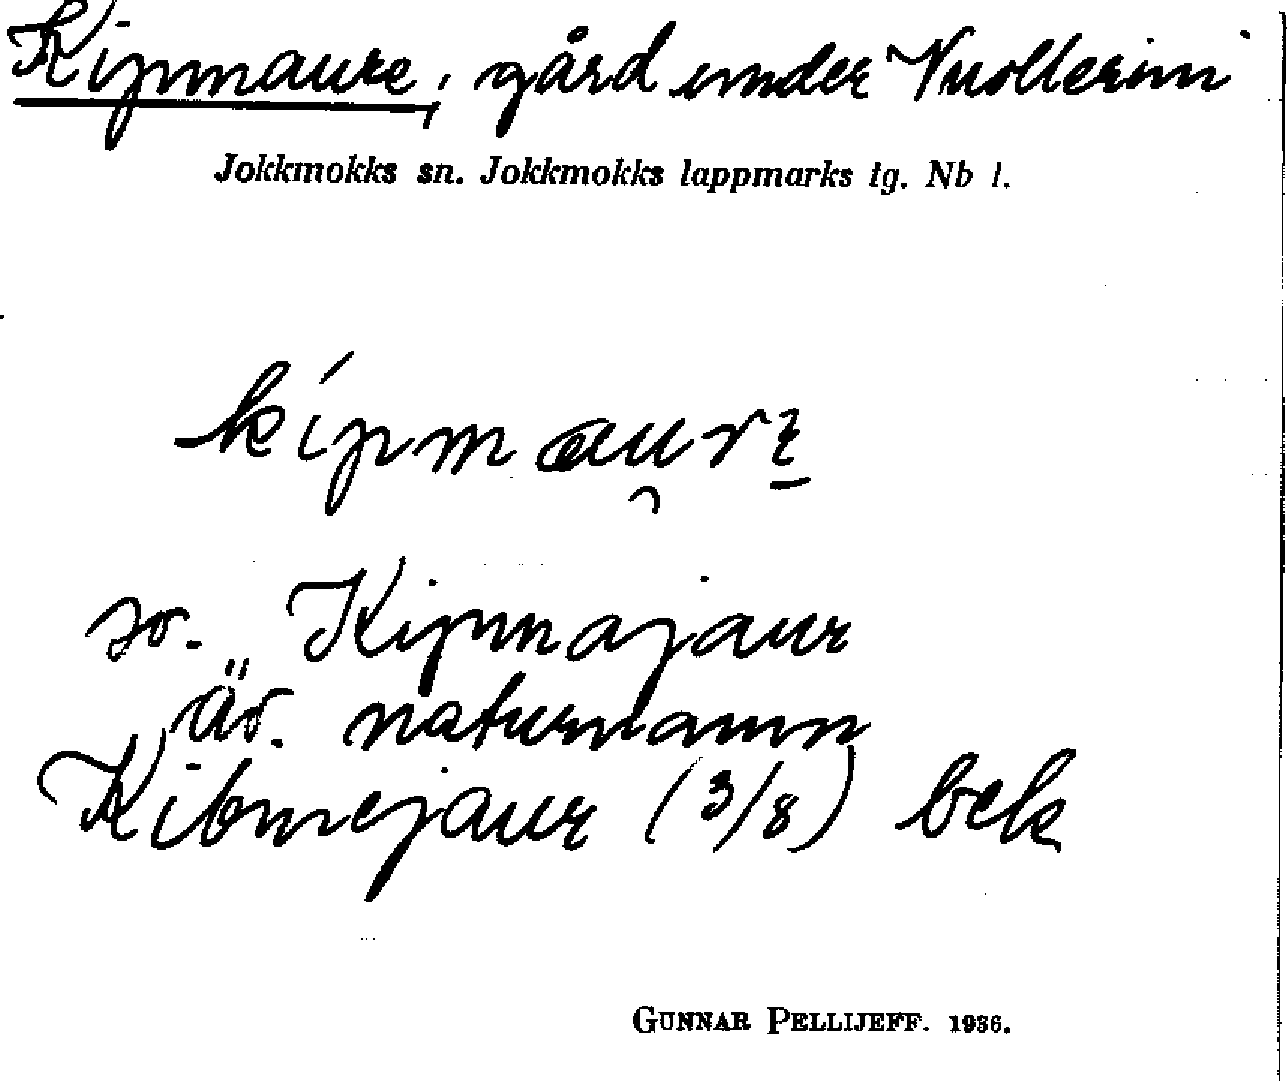 Kipmaure, gård under Vuollerim
Jokkmokks sn. Jokkmokks lappmarks tg. Nb l.
kípmau̯re̱
so. Kipmajaur
äv. naturnamn
Kibmejaur (3/8) bek
GUNNAR PELLIJEFF. 1936.